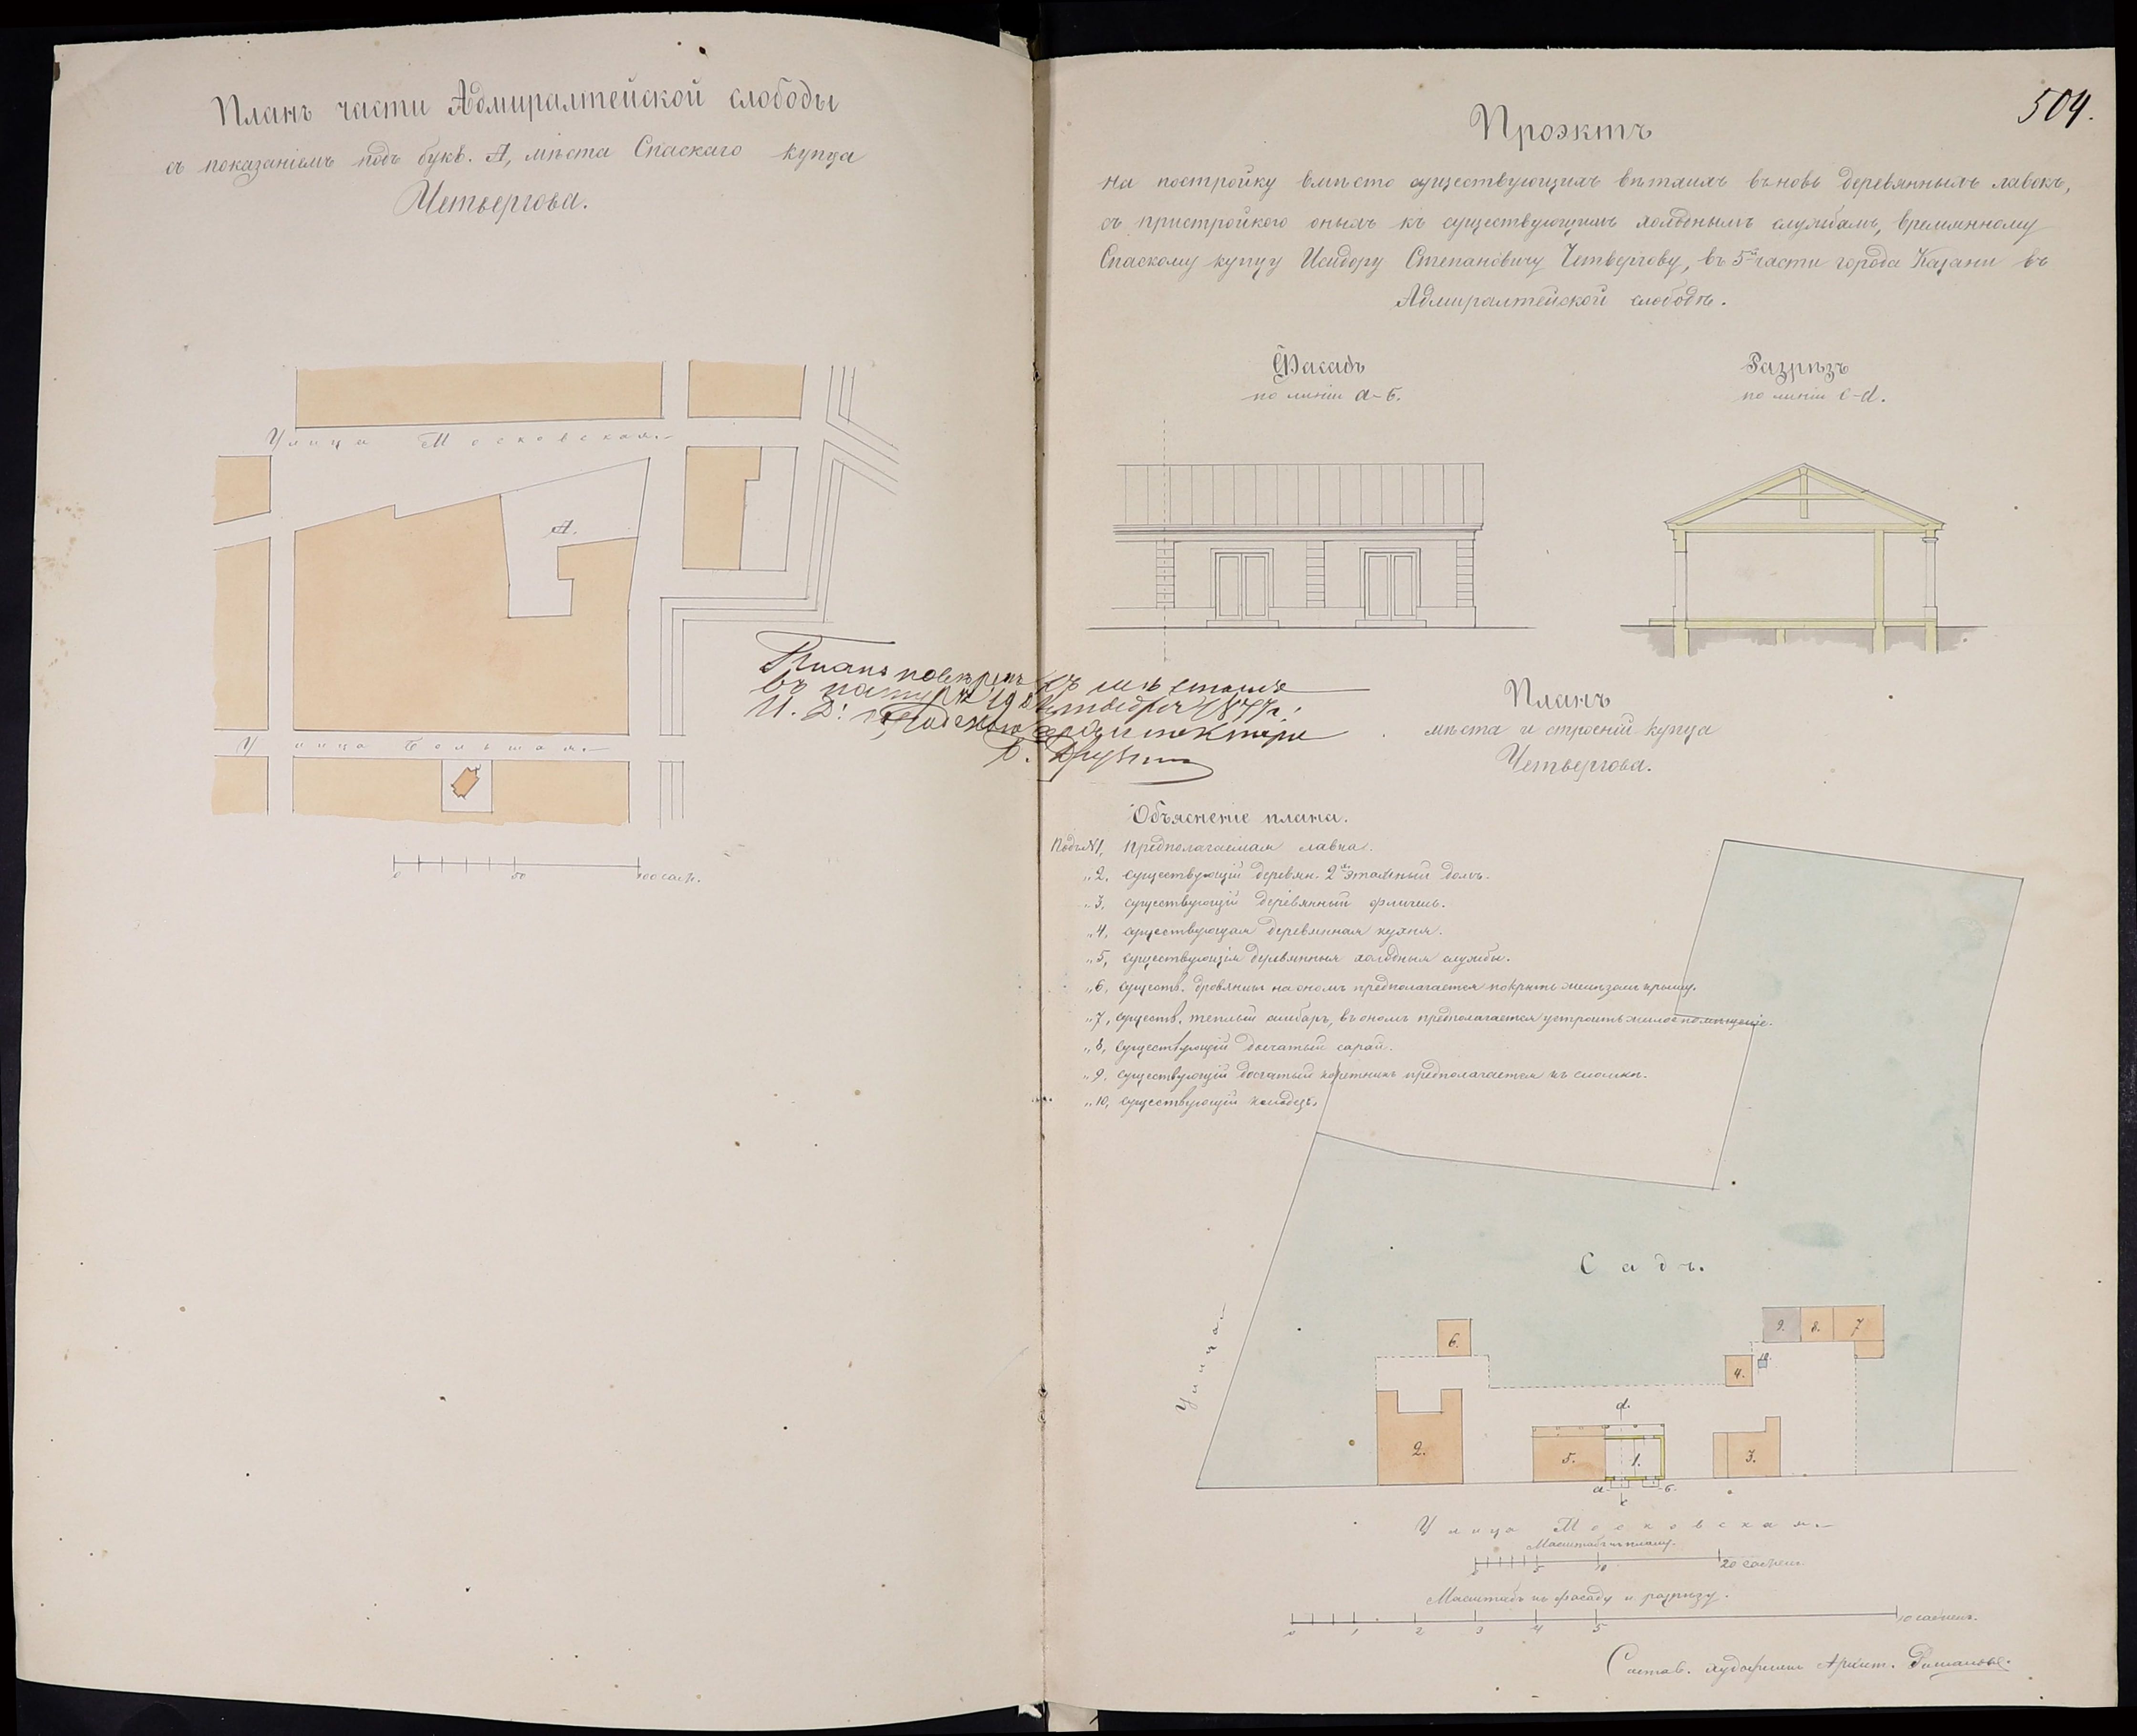 Планъ части Адмиралтейской слободы
съ показаніемъ подъ букв. А, мѣста Спаскаго купца
Четвергова.
Улица Московская.
А.
Улица Большая.
0 50 100 саж.
Планъ повѣренъ съ мѣстомъ
въ натурѣ 19 Октября 1877 г.
И. Д. Городскаго архитектора
504.
Проэктъ
на постройку вмѣсто существующихъ вѣтхихъ въновь деревянныхъ лавокъ,
съ пристройкою оныхъ къ существующимъ холоднымъ службамъ, временному
Спаскому купцу Исидору Степановичу Четвергову, въ 5й части города Казани въ
Адмиралтейской слободѣ.
Фасадъ
по линіи a-б.
Разрѣзъ
по линіи c-d.
Планъ
мѣста и строеній купца
Четвергова.
Объясненіе плана.
Подъ №1, Предполагаемая лавка.
„2, существующій деревян. 2хъ этажный домъ.
„3, существующій деревянный флигель.
„4, существующая деревянная кухня.
„5, существующія деревянныя холодныя службы.
„6, существ. дровяникъ на ономъ предполагается покрыть желѣзомъ крышу.
„7, существ. теплый амбаръ, въ ономъ предполагается устроить жилое помѣщеніе.
„8, существующій досчатый сарай.
„9, существующій досчатый предполагается къ сломкѣ.
„10, существующій колодезь.
Садъ.
Улица
6.
9. 8. 7
10.
4.
d.
2.
5. 1. 3.
a б.
c
Улица Московская.
Масштабъ къ плану.
0 5 10 20 сажень
Масштабъ къ фасаду и разрѣзу.
0 1 2 3 4 5 10 сажень.
Состав. художникъ Архит. Романовъ.